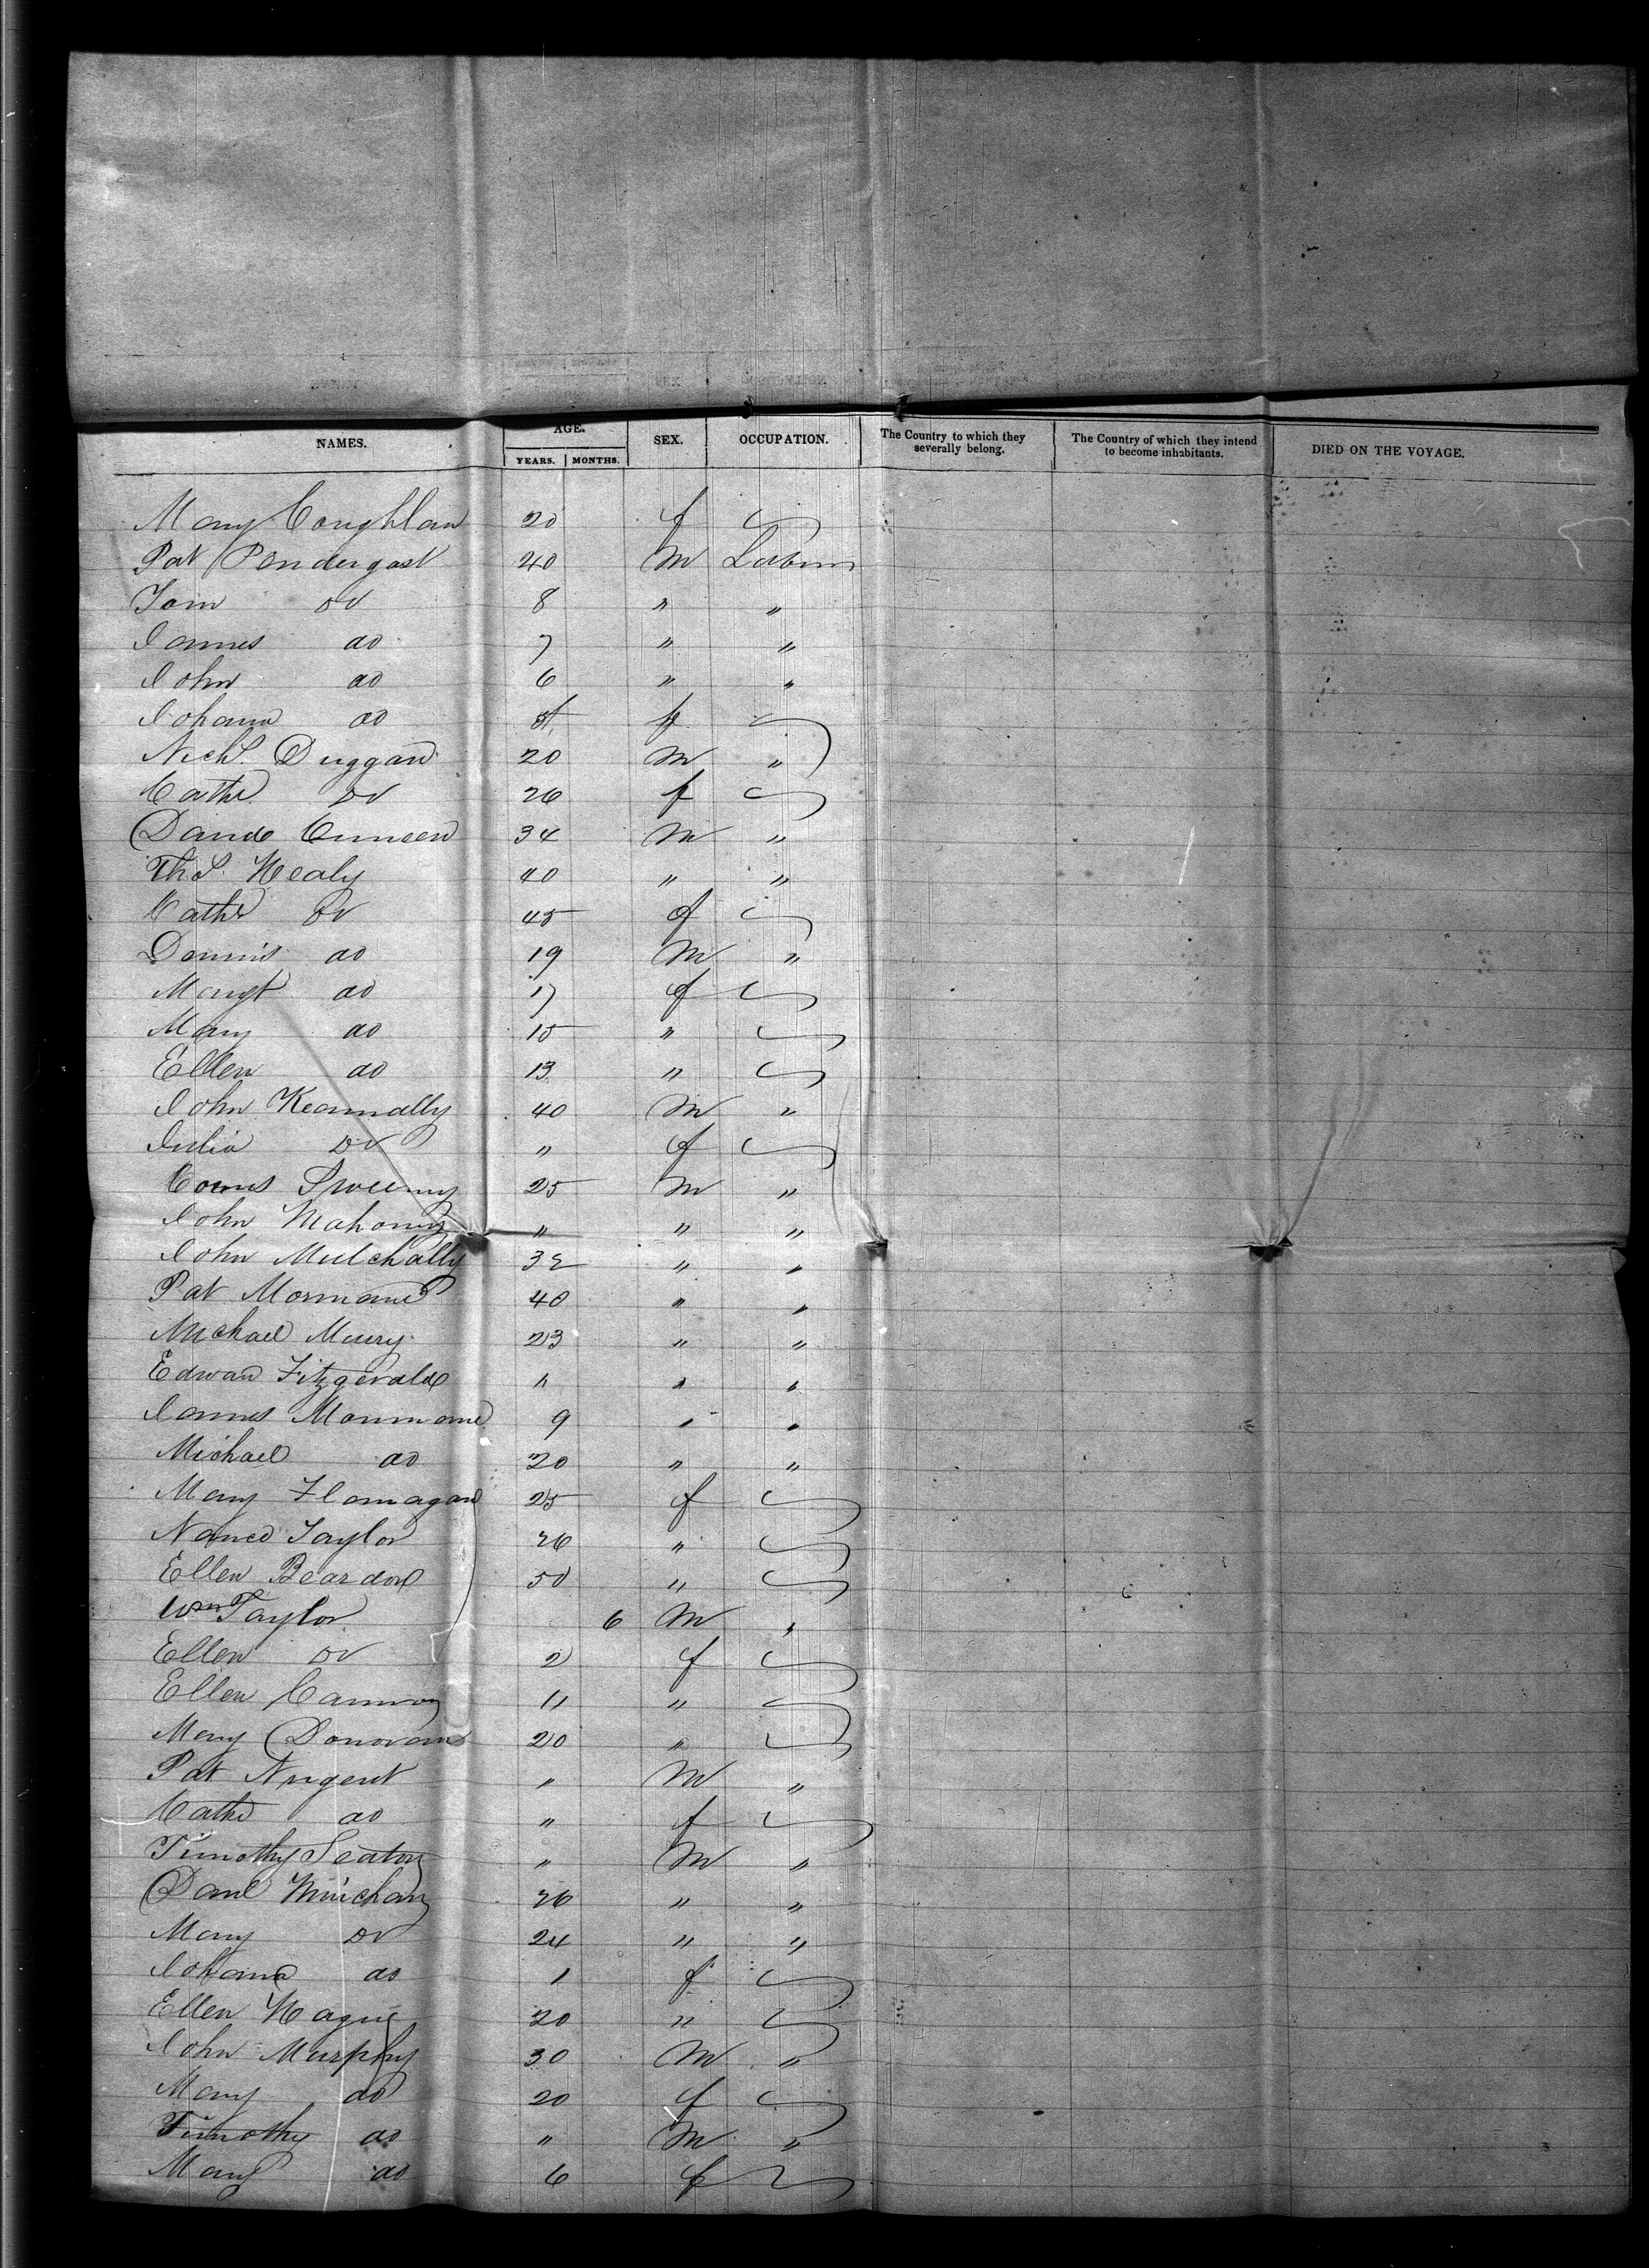 NAMES. AGE. YEARS. MONTHS. SEX. OCCUPATION. The Country to which they severally belong. The Country of which they intend to become inhabitants. DIED ON THE VOYAGE.
Mary Coughlan 20 f
Pat Pendergast 40 M Labour
Tom Do 8 " "
James do 7 " "
John do 6 " "
Johana do f
Nichs. Duggan 20 M "
Cathe Do 26 f
David 34 M "
Ths. Healy 40 " "
Cathe Do 45 f
Dennis do 19 M "
Margt do 17 f
Mary do 15 "
Ellen do 13 "
John Keannally 40 M "
Julia Do " f
Corns Sweeny 25 M "
John Mahoney " " "
John Mulchally 32 " "
Pat 40 " "
Michael 23 " "
Edward Fitzgerald " " "
James 9 " "
Michael do 20 " "
Mary Flannagan 25 f
Nance Taylor 26 "
Ellen Beardon 50 "
Wm Taylor 6 M "
Ellen Do 2 f
Ellen 11 "
Mary Donovan 20 "
Pat Nugent " M "
Cathe do " f
Timothy " M "
Danl Minchan 26 " "
Mary Do 24 " "
Johana do 1 f
Ellen Hague 20 "
John Murphy 30 M "
Mary do 20 f
Timothy do " M "
Mary do 6 f